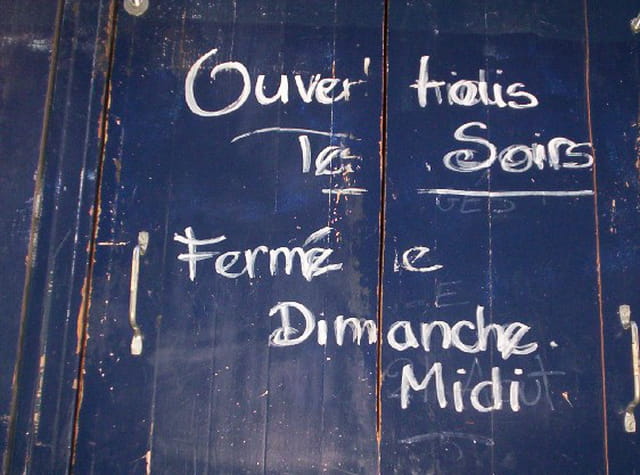 Ouver' 
les Soirs
Fermé le
Dimanche.
Midi